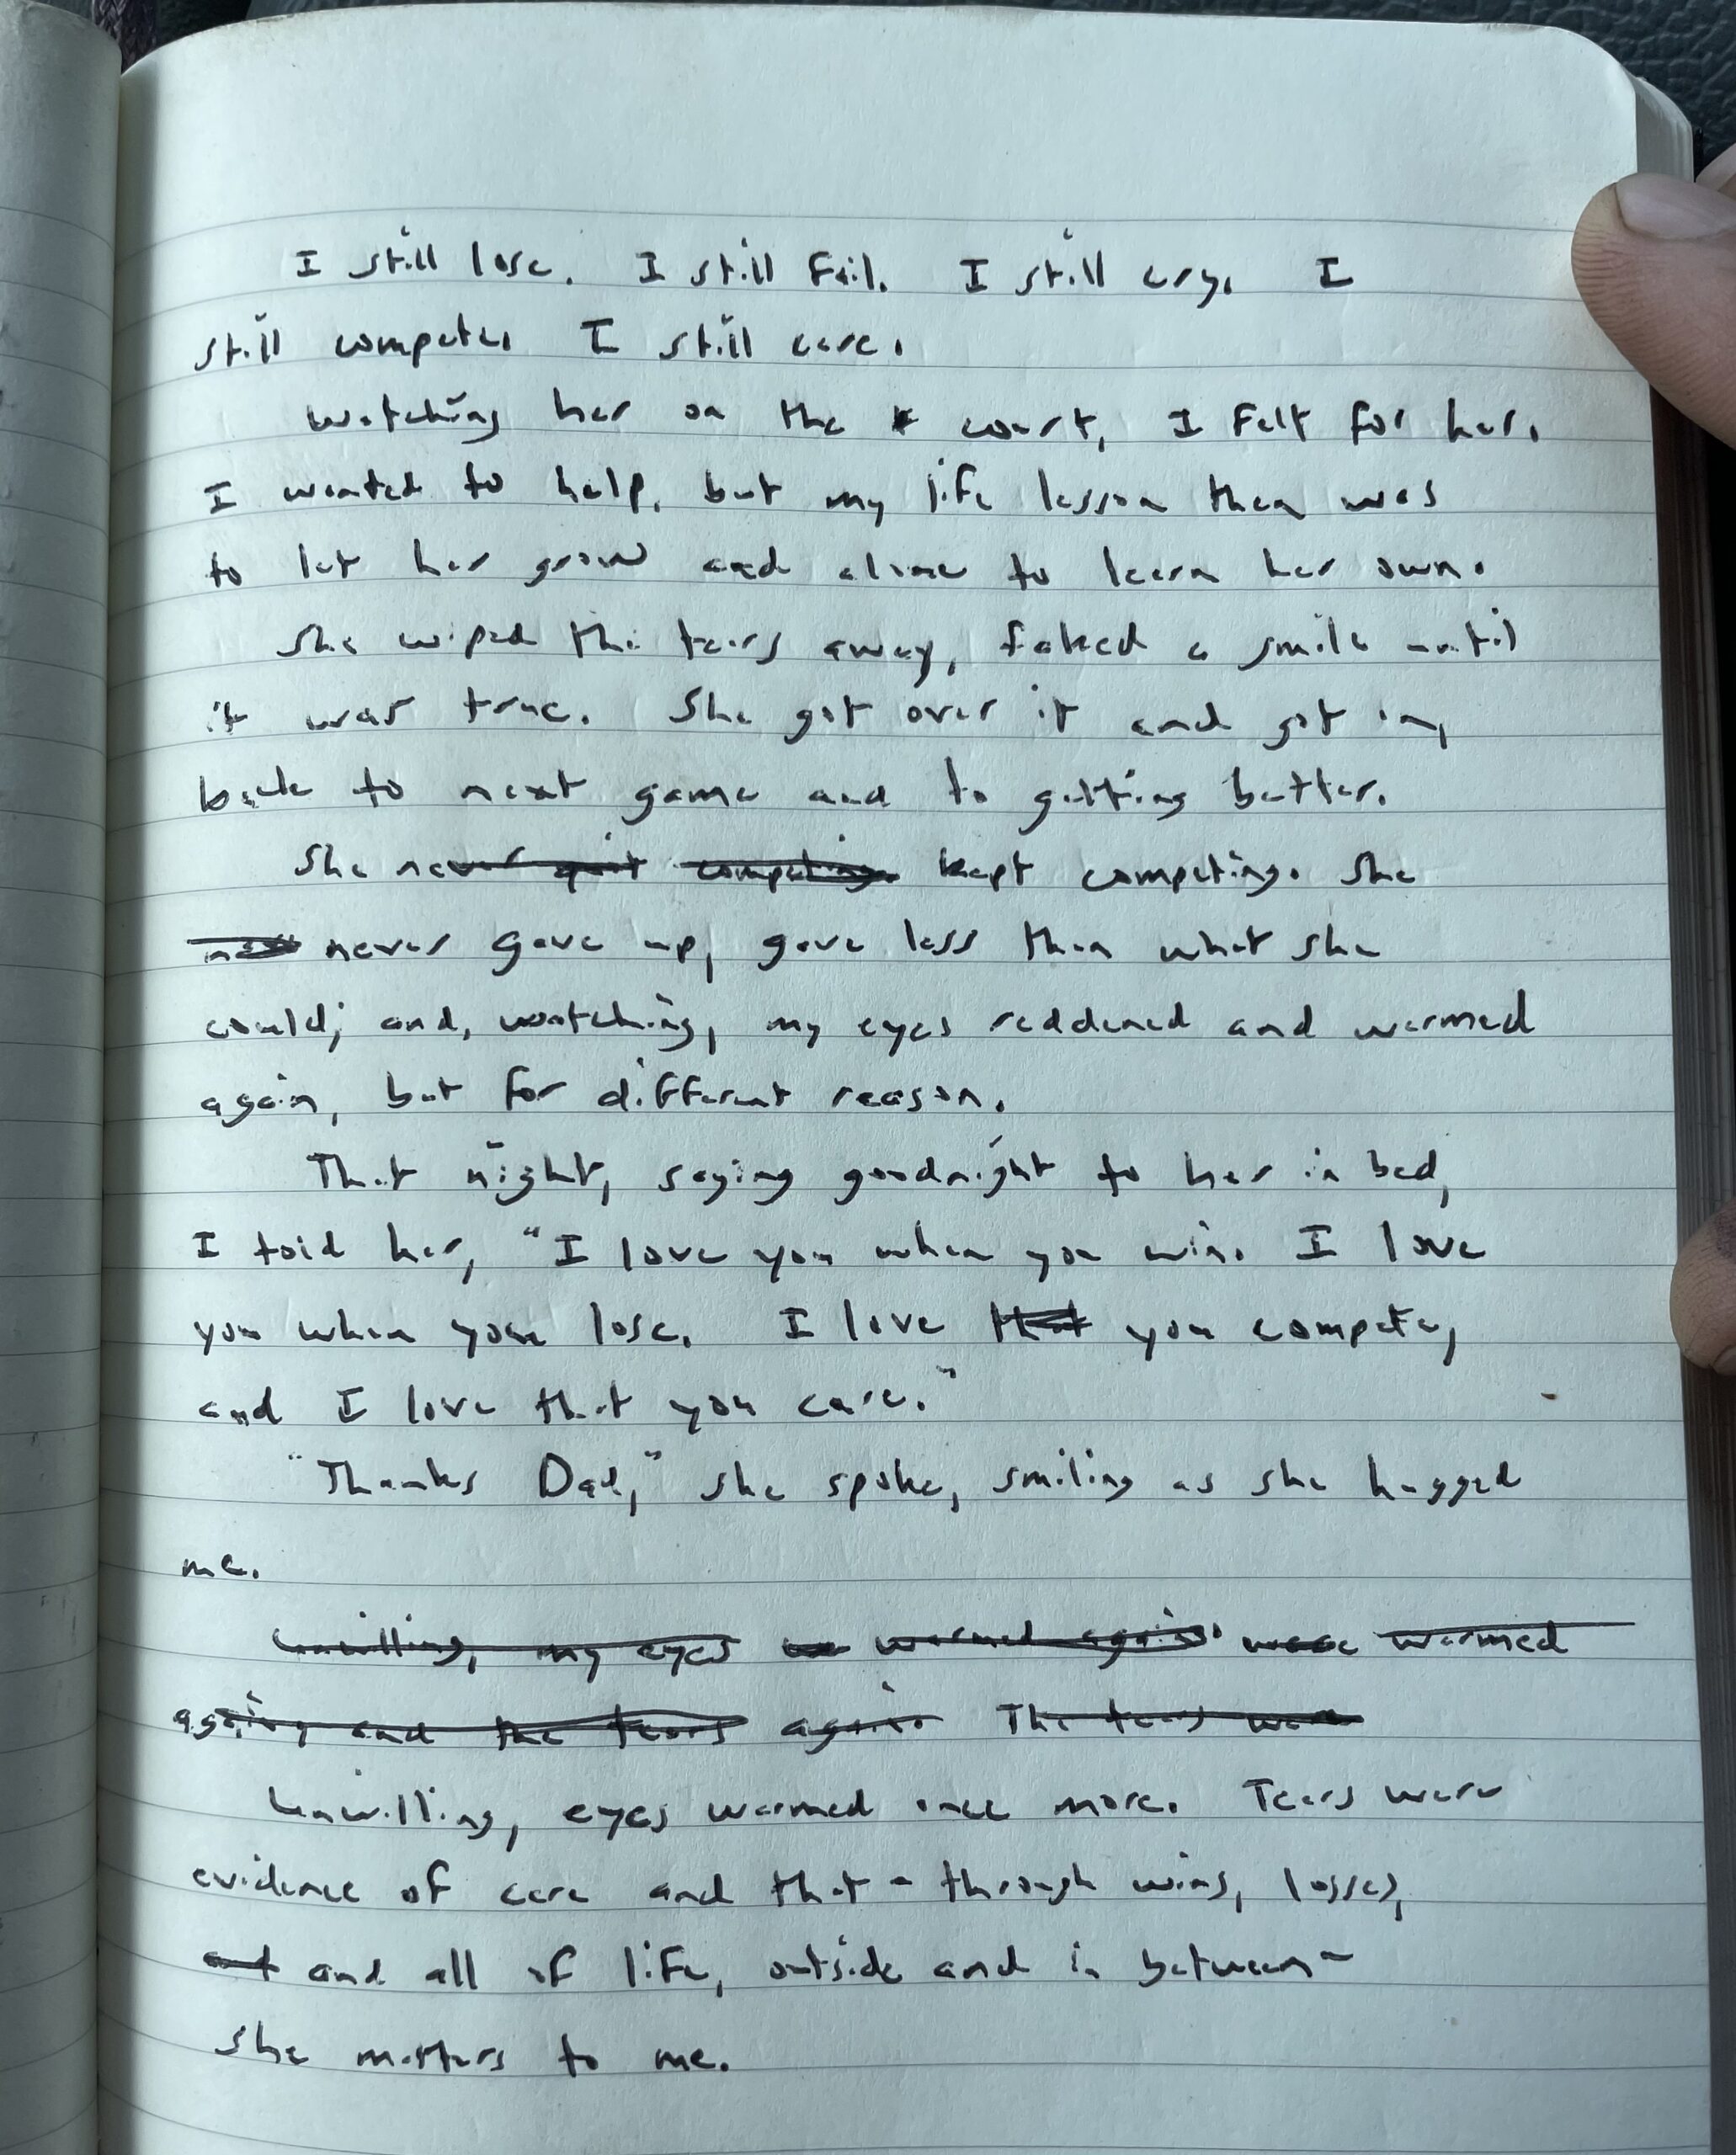 I still lose. I still fail. I still cry. I
still compete. I still care.
Watching her on the court, I felt for her.
I wanted to help, but my life lesson then was
to let her grow and alone to learn her own.
She wiped the tears away, faked a smile until
it was true. She got over it and got in,
back to next game and to getting better.
She never quit competing. kept competing. She
never gave up, gave less than what she
could; and, watching, my eyes reddened and warmed
again, but for different reason.
That night, saying goodnight to her in bed,
I told her, "I love you when you win. I love
you when you lose. I love that you compete,
and I love that you care."
"Thanks Dad," she spoke, smiling as she hugged
me.
Unwilling, my eyes warmed again. were warmed
again, and the tears again. The tears were
Unwilling, eyes warmed once more. Tears were
evidence of care and that - through wins, losses,
and all of life, outside and in between -
she matters to me.